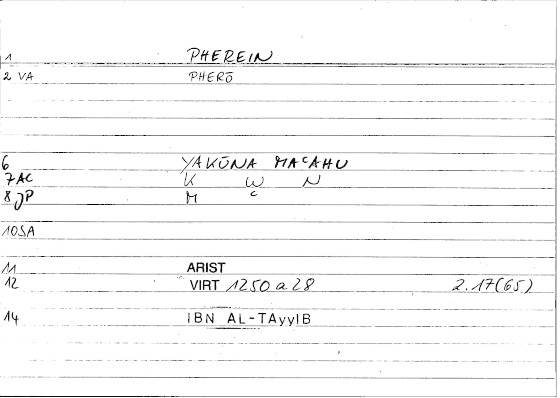 1 PHEREIN
2 VA PHERŌ
6 YAKŪNA MAʿAHU
7 AC K W N
8 JP M ʿ
10 SA
11 ARIST
12 VIRT 1250 a 28 2.17(65)
14 IBN AL-TAyyIB